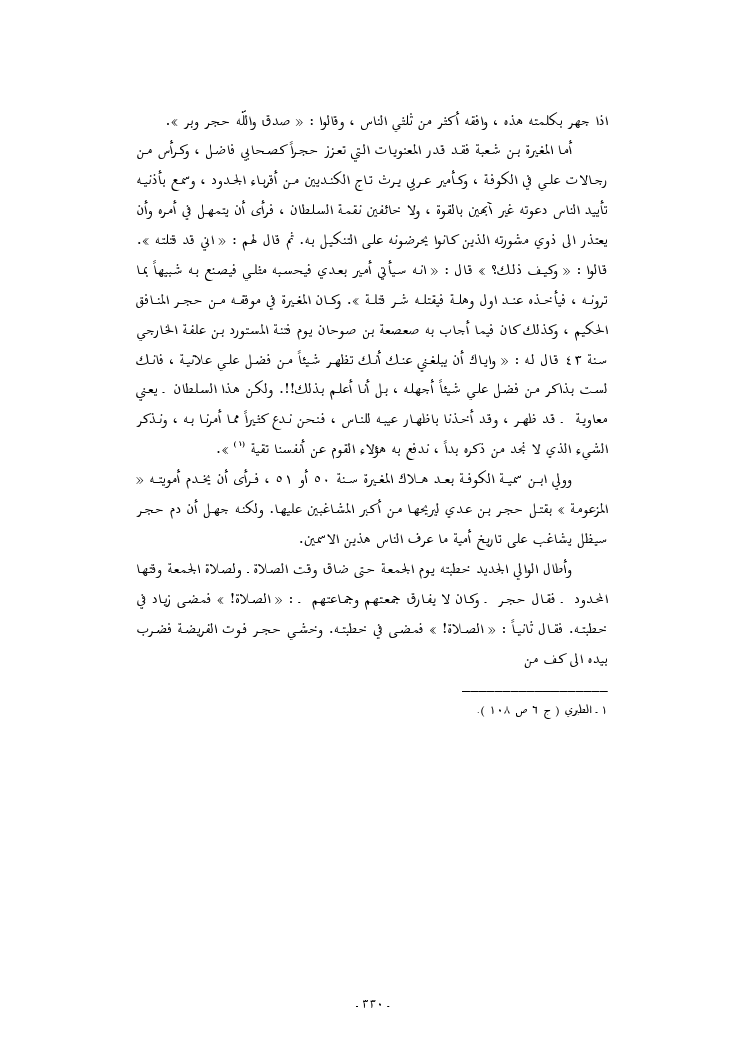 اذا جهر بكلمته هذه ، وافقه أكثر من ثلثي الناس ، وقالوا : « صدق واللّه حجر وبر ».
أما المغيرة بن شعبة فقد قدر المعنويات التي تعزز حجراً كصحابي فاضل ، وكرأس من
رجالات علي في الكوفة ، وكأمير عربي يرث تاج الكنديين من أقرباء الجدود ، وسمع بأذنيه
تأييد الناس دعوته غير آبهين بالقوة ، ولا خائفين نقمة السلطان ، فرأى أن يتمهل في أمره وأن
يعتذر الى ذوي مشورته الذين كانوا يحرضونه على التنكيل به. ثم قال لهم : « اني قد قتلته ».
قالوا : « وكيف ذلك؟ » قال : « انه سيأتي أمير بعدي فيحسبه مثلي فيصنع به شبيهاً بما
ترونه ، فيأخذه عند اول وهلة فيقتله شر قتلة ». وكان المغيرة في موقفه من حجر المنافق
الحكيم ، وكذلك كان فيما أجاب به صعصعة بن صوحان يوم فتنة المستورد بن علفة الخارجي
سنة ٤٣ قال له : « واياك أن يبلغني عنك أنك تظهر شيئاً من فضل علي علانية ، فانك
لست بذاكر من فضل علي شيئاً أجهله ، بل أنا أعلم بذلك!!. ولكن هذا السلطان ـ يعني
معاوية ـ قد ظهر ، وقد أخذنا باظهار عيبه للناس ، فنحن ندع كثيراً مما أمرنا به ، ونذكر
الشيء الذي لا نجد من ذكره بداً ، ندفع به هؤلاء القوم عن أنفسنا تقية (١) ».
وولي ابن سمية الكوفة بعد هلاك المغيرة سنة ٥٠ أو ٥١ ، فرأى أن يخدم أمويته «
المزعومة » بقتل حجر بن عدي ليريحها من أكبر المشاغبين عليها. ولكنه جهل أن دم حجر
سيظل يشاغب على تاريخ أمية ما عرف الناس هذين الاسمين.
وأطال الوالي الجديد خطبته يوم الجمعة حتى ضاق وقت الصلاة ـ ولصلاة الجمعة وقتها
المحدود ـ فقال حجر ـ وكان لا يفارق جمعتهم وجماعتهم ـ : « الصلاة! » فمضى زياد في
خطبته. فقال ثانياً : « الصلاة! » فمضى في خطبته. وخشي حجر فوت الفريضة فضرب
بيده الى كف من
١ ـ الطبري ( ج ٦ ص ١٠٨ ).
ـ ٣٣٠ ـ